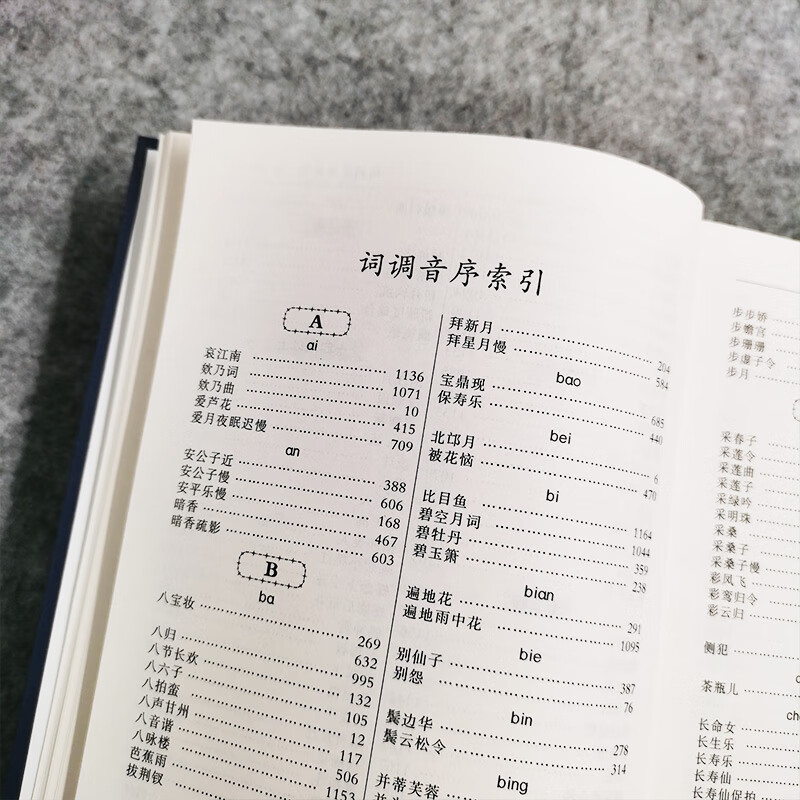 词调音序索引
A
ai
哀江南 ………… 1136
欸乃词 ………… 1071
欸乃曲 ………… 10
爱芦花 ………… 415
爱月夜眠迟慢 ………… 709
an
安公子近 ………… 388
安公子慢 ………… 606
安平乐慢 ………… 168
暗香 ………… 467
暗香疏影 ………… 603
B
ba
八宝妆 ………… 269
八归 ………… 632
八节长欢 ………… 995
八六子 ………… 132
八拍蛮 ………… 105
八声甘州 ………… 12
八音谐 ………… 117
八咏楼 ………… 506
芭蕉雨 ………… 1153
拔荆钗
拜新月 ………… 204
拜星月慢 ………… 584
bao
宝鼎现 ………… 685
保寿乐 ………… 440
bei
北邙月 ………… 6
被花恼 ………… 470
bi
比目鱼 ………… 1164
碧空月词 ………… 1044
碧牡丹 ………… 359
碧玉箫 ………… 238
bian
遍地花 ………… 291
遍地雨中花 ………… 1095
bie
别仙子 ………… 387
别怨 ………… 76
bin
鬓边华 ………… 278
鬓云松令 ………… 314
bing
并蒂芙蓉
步步娇
步蟾宫
步珊珊
步虚子令
步月
采春子
采莲令
采莲曲
采莲子
采绿吟
采明珠
采桑
采桑子
采桑子慢
彩凤飞
彩鸾归令
彩云归
侧犯
茶瓶儿
长命女
长生乐
长寿乐
长寿仙
长寿仙促拍